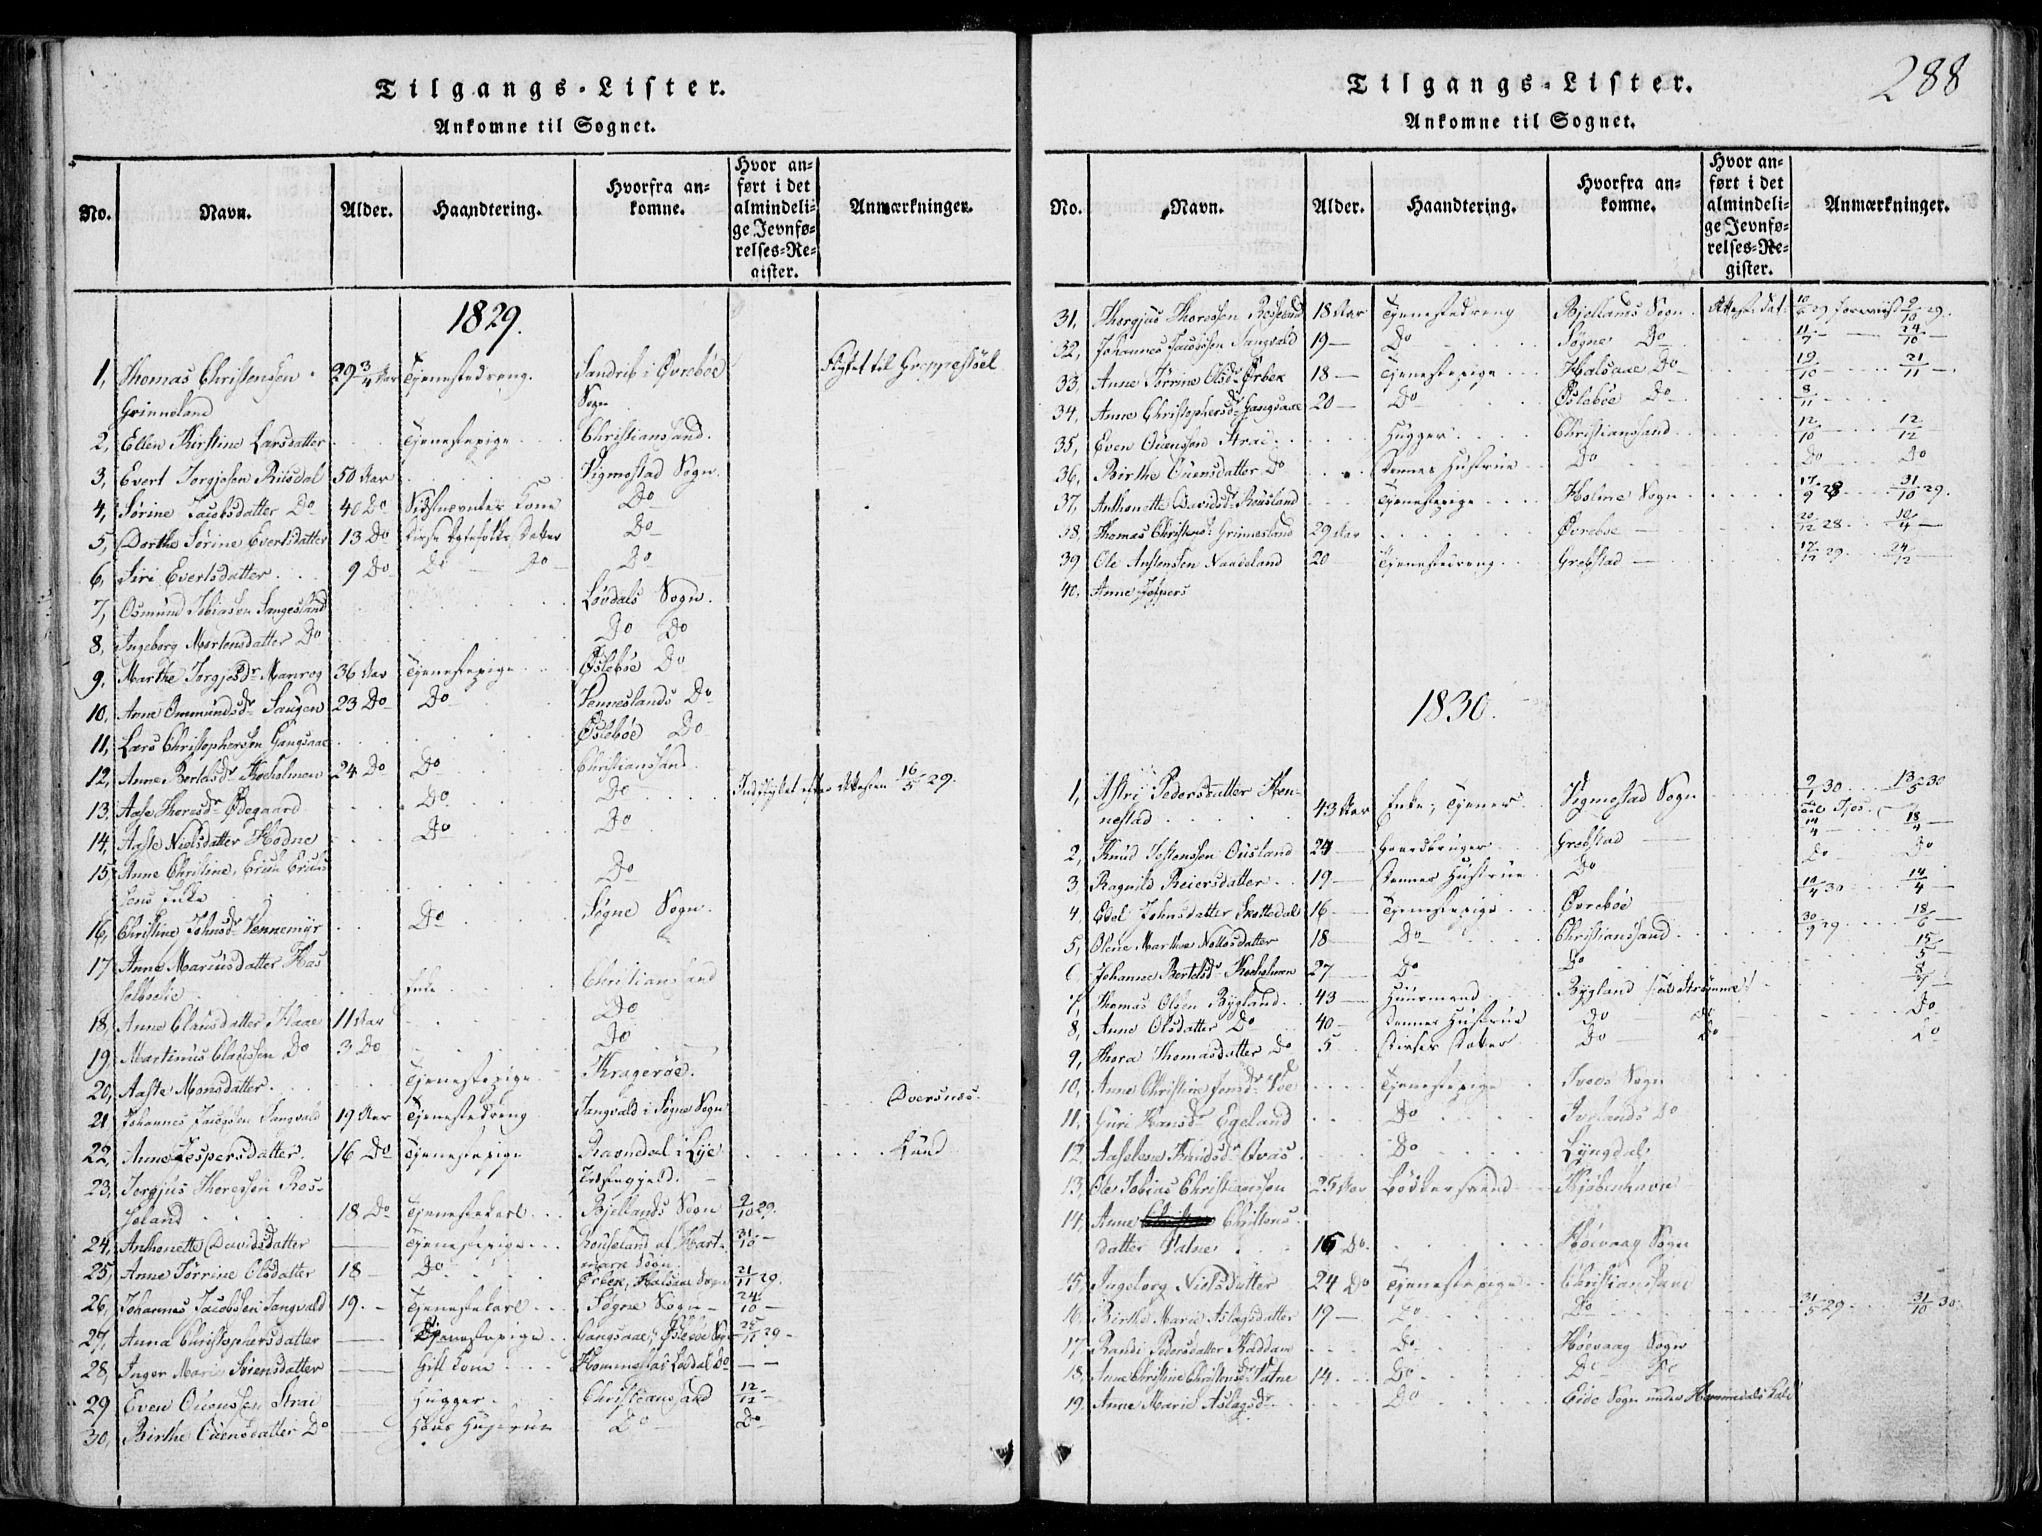 Tilgangs-Lister.
Ankomne til Sognet.
No. Navn. Alder. Haandtering. Hvorfra ankomne. Hvor anført i det almindelige Jevnførelses-Register. Anmærkninger.
1829.
1, Thomas Christensen 29 3/4 Aar Tjenestedreng. Sandrib i Øvrebøe Flyttet til
Grinneland Sogn
2, Ellen Kirstine Larsdatter Tjenestepige Christiansand.
3, Evert Jorgjesen Riisdal 50 Aar Vigmostad Sogn.
4, Sørine Jacobsdatter Do 40 Do Sidstnævntes Kone Do
5, Dorthe Sørine Evertsdatter 13 Do Disse Ægtefolks Datter Do
6, Siri Evertsdatter 9 Do Do Do Do
7, Osmund Tobiasen Løvdals Sogn.
8, Ingeborg Mortensdatter Do Do Do
9, Marthe Jorgjesdr 36 Aar Tjenestepige Øslebøe Do
10, Anne Ommundsdr Saugen 23 Do Do Venneslands Do
11, Lars Christophersen Gangsaae Øslebøe Do
12, Anne Bertelsdr Kocholmen 24 Do Do Christiansand
13, Aase Thoresdr Ødegaard Do Do Indflyttet efter Attesten 16/5 29.
14, Aaste Nielsdatter Hodne Do Do
15, Anne Christine, Do
Enke
16, Christine Johnsdr Vennemyr Do Søgne Sogn.
17 Anne Mariusdatter Enke Christiansand
18, Anne Clausdatter Haae 11 Aar Do
19, Martinus Claussen Do 3 Do Do
20, Aaste Monsdatter. Tjenestepige Kragerøe.
21 Johannes Jacobsen Langvald 19 Aar Tjenestedreng Langvald i Søgne Sogn Dversnæs.
22, Anne Jespersdatter. 16 Do Tjenestepige Ravndal i Lye Lund
23, Jorgjus Thoressen Ros- Præstegjeld.
seland 18 Do Tjenestekarl Bjellands Sogn 9/10 29.
24, Anthonette Davidsdatter Tjenestepige Rouseland af Hart- 31/10
25, Anne Tørrine Olsdatter 18 Do mark Sogn. Ørbek, Halsaae Sogn 21/11 29.
26, Johannes Jacobsen Langvald 19. Tjenestekarl Søgne Sogn 24/10
27, Anna Christophersdatter Tjenestepige Gangsaae, Øslebøe 29
28, Inger Marie Sørensdatter Gift Kone Løvdal Do
29 Even Ouenssen Strai Hugger Christiansand 12/12
30, Birthe Ouensdatter Do Hans Hustrue Do Do
288
Tilgangs-Lister.
Ankomne til Sognet.
No. Navn. Alder. Haandtering. Hvorfra ankomne. Hvor anført i det almindelige Jevnførelses-Register. Anmærkninger.
31, Thorgjus Thoressen Roseland 18 Aar Tjenestedreng Bjellands Sogn Attest. Dat. 10/6 29 foreviist 9/10 29.
32, Johannes Jacobsen Langvald 19 Do Søgne Do 11/7 24/10
33, Anne Tørrine Olsdr Ørbek 18 Tjenestepige Halsaae Do 19/10 21/11
34, Anne Christophersdr Gangsaae 20 Do Øslebøe Do 8/11
35, Even Ouensen Strai Hugger Christianssand 12/10 12/12
36, Birthe Ouensdatter Do Dennes Hustrue Do Do Do
37, Anthonette Davidsdr Rousland Tjenestepige Holme Sogn 17/9 28 31/10 29.
38, Thomas Christens. Grinnesland 29 Aar Øvrebøe 20/12 28 10/4
39, Ole Anstensen Naadeland 20 Tjenestedreng Grebstad 17/12 29 24/12
40. Anne Jespers
1830.
1, Astri Pedersdatter Hen- Enke, Tjener Vigmostad Sogn 2/1 30 13/5 30
nestad 43 Aar
2, Knud Testenssen Ousland 24 Gaardbruger Grebstad 14/4 18/4
3 Ragnild Reiersdatter 19 Dennes Hustrue Do Do Do
4, Edel Johnsdatter Skottedal 16 Tjenestepige Øvrebøe 10/4 30 14/4
5, Olene Marthe Nollosdatter 18 Do Christianssand 30/9 29 18/6
6 Johanne Bertelsdr Kocholmen 27 Do Do 15/5
7, Thomas Olsen Bygland 43 Huusmand Bygland 8/7
8, Anne Olsdatter Do 40 Dennes Hustrue Do Do Do
9, Thora Thomasdatter Do 5 Disses Datter Do Do Do
10, Anne Christine Jensdr Tjenestepige Sogn
11, Guri Hansdr Egeland Do Ivelands Do
12, Aaselene Knudsdr Do Lyngdal.
13, Ole Tobias Christianssen 25 Aar Bødkersvend Kjøbenhavn
14, Anne Christens-
datter Vatne 16 Do. Høevaag Sogn
15, Ingeborg Nielsdatter 24 Do Tjenestepige Christiansand
16, Birthe Marie Aslagsdatter 19 Do Do 31/5 29 31/10 30.
17, Randi Pedersdatter Do Høevaag Sogn
18, Anne Christine Christensdr Vatne 14 Do Do Do
19, Anne Marie Aslagsdr Do Eide Sogn under